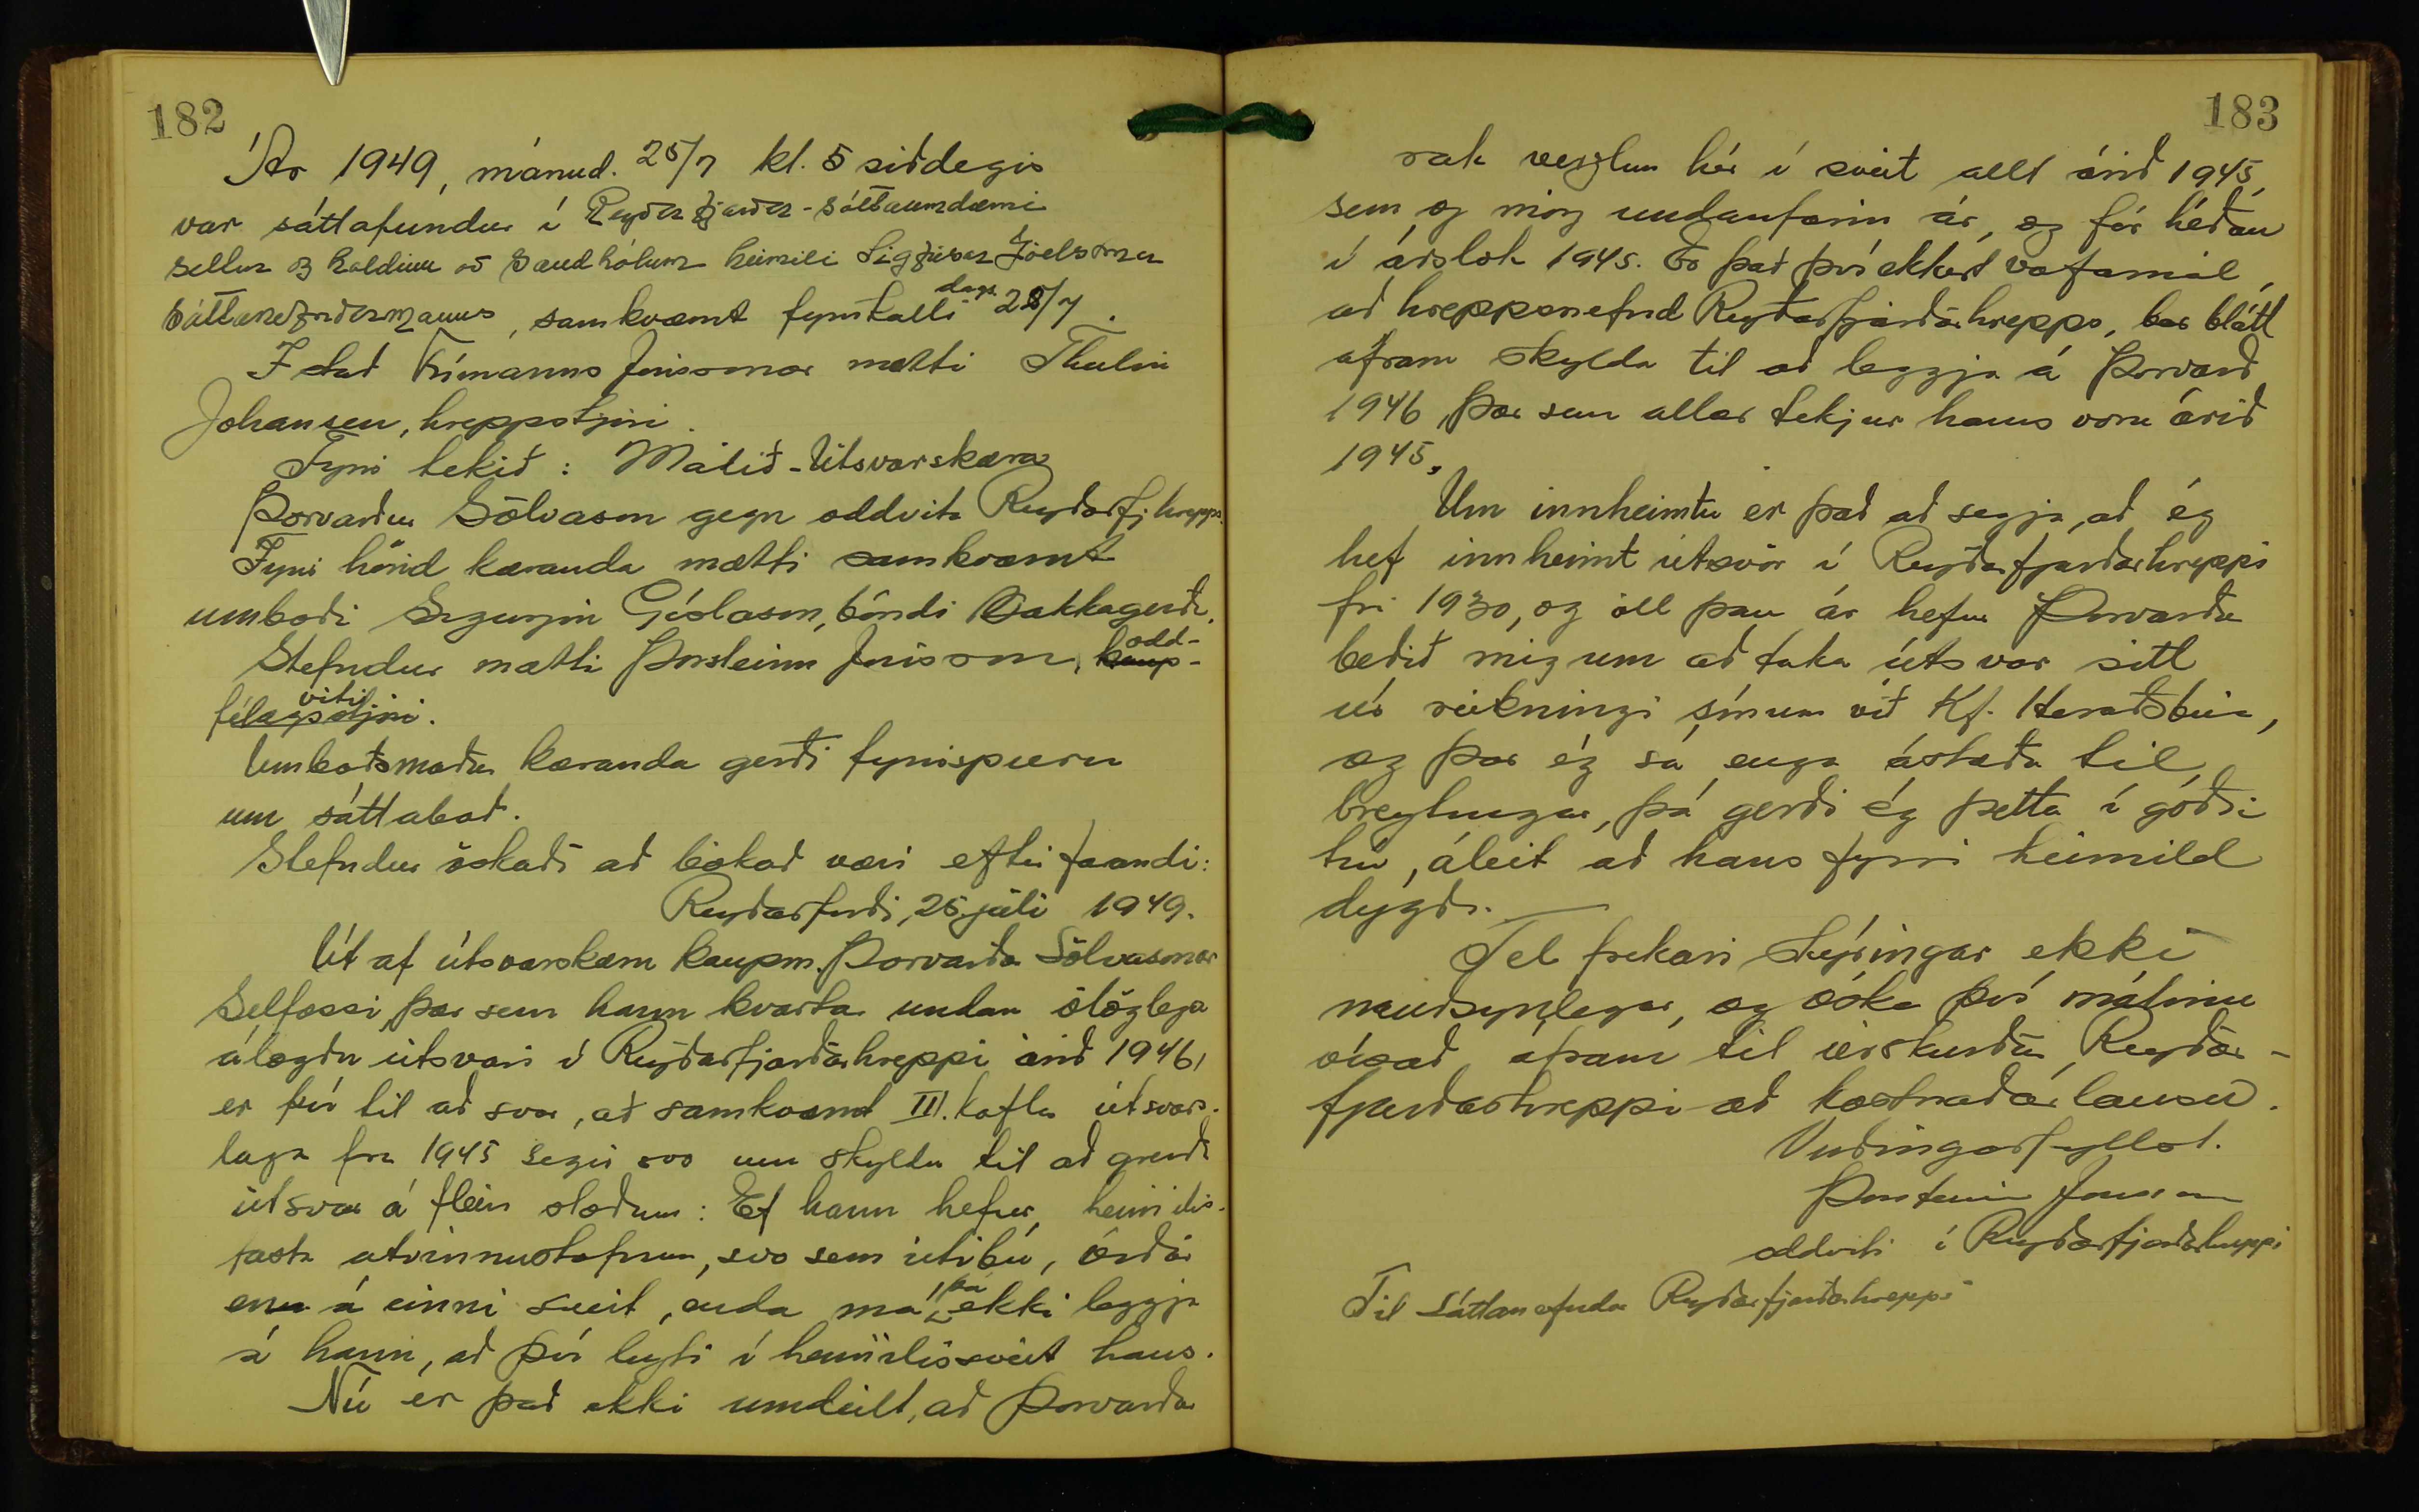 182
Ár 1949, mánud. 25/7 kl. 5 síðdegis
var sáttafundur í Reyðarfjarðar-sáttaumdæmi
settur og haldinn að Sandhólum heimili Sigfúsar Jóelssonar
sáttanefndarmanns, samkvæmt fyrirkalli dags. 25/7.
I stað Frímanns Jónssonar mætti Thulin
Johansen, hreppstjóri.
Fyrir tekið: Málið - Útsvarskæra
Þorvarður Sölvason gegn oddvita Reyðarfj.hrepps.
Fyrir hönd kæranda mætti samkvæmt
umboði Sigurjón Gíslason, bóndi Bakkagerði.
Stefndur mætti Þorsteinn Jónsson, kaup- odd-
félagsstjóri. viti
Umboðsmaður kæranda gerði fyrirspurn
um sáttaboð.
Stefndur óskaði að bókað væri eftirfarandi:
Reyðarfirði, 25. júlí 1949.
Út af útsvarskæru kaupm. Þorvarðar Sölvasonar
Selfossi, þar sem hann kvartar undan ólöglega
álögðu útsvari í Reyðarfjarðarhreppi árið 1946,
er því til að svar, að samkvæmt III. kafla útsvars-
laga frá 1945 segir svo um skyldu til að greiða
útsvar á fleiri stöðum: Ef hann hefur heimilis-
fasta atvinnustofnun, svo sem útibú,
en á einni sveit, enda má þá ekki leggja
á hann, að því leyti í heimilissveit hans.
Nú er það ekki umdeilt, að Þorvarður
183
rak verzlun hér í sveit allt árið 1945,
sem og mörg undanfarin ár, og fór héðan
í árslok 1945. Er það því ekkert vafamál,
að hreppsnefnd Reyðarfjarðarhrepps, bar blátt
áfram skylda til að leggja á Þorvarð
1946, þar sem allar tekjur hans voru árið
1945.
Um innheimtu er það að segja, að ég
hef innheimt útsvör í Reyðarfjarðarhreppi
frá 1930, og öll þau ár hefur Þorvarður
beðið mig um að taka útsvar sitt
úr reikningi sínum við Kf. Héraðsbúa,
og þar ég sá enga ástæðu til
breytingar, þá gerði ég þetta í góðri
trú, áleit að hans fyrri heimild
dygði.
Tel frekari skýringar ekki
nauðsynlegar, og óska því málinu
vísað áfram til úrskurðar, Reyðar-
fjarðarhreppi að kostnaðarlausu.
Virðingarfyllst.
Þorsteinn Jónsson
oddviti í Reyðarfjarðarhreppi
Til Sáttanefndar Reyðarfjarðarhrepps